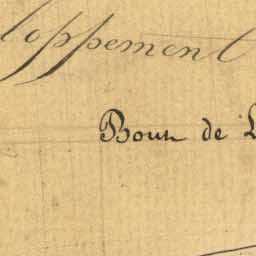 loppement
Bout de L